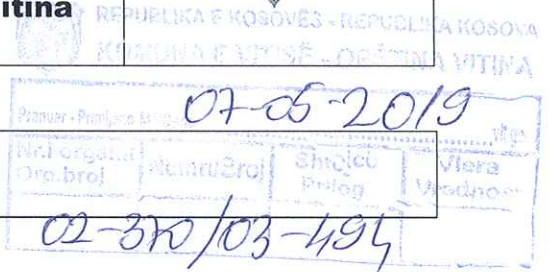 itina
REPUBLIKA E KOSOVËS - REPUBLIKA KOSOVA
KOMUNA E VITISË - OPŠTINA VITINA
Pranuar - Primljeno
07-05-2019
Nr.i organit Numri/Broj Shtojcë Vlera
Org.broj Prilog Vrednost
02-370/03-494